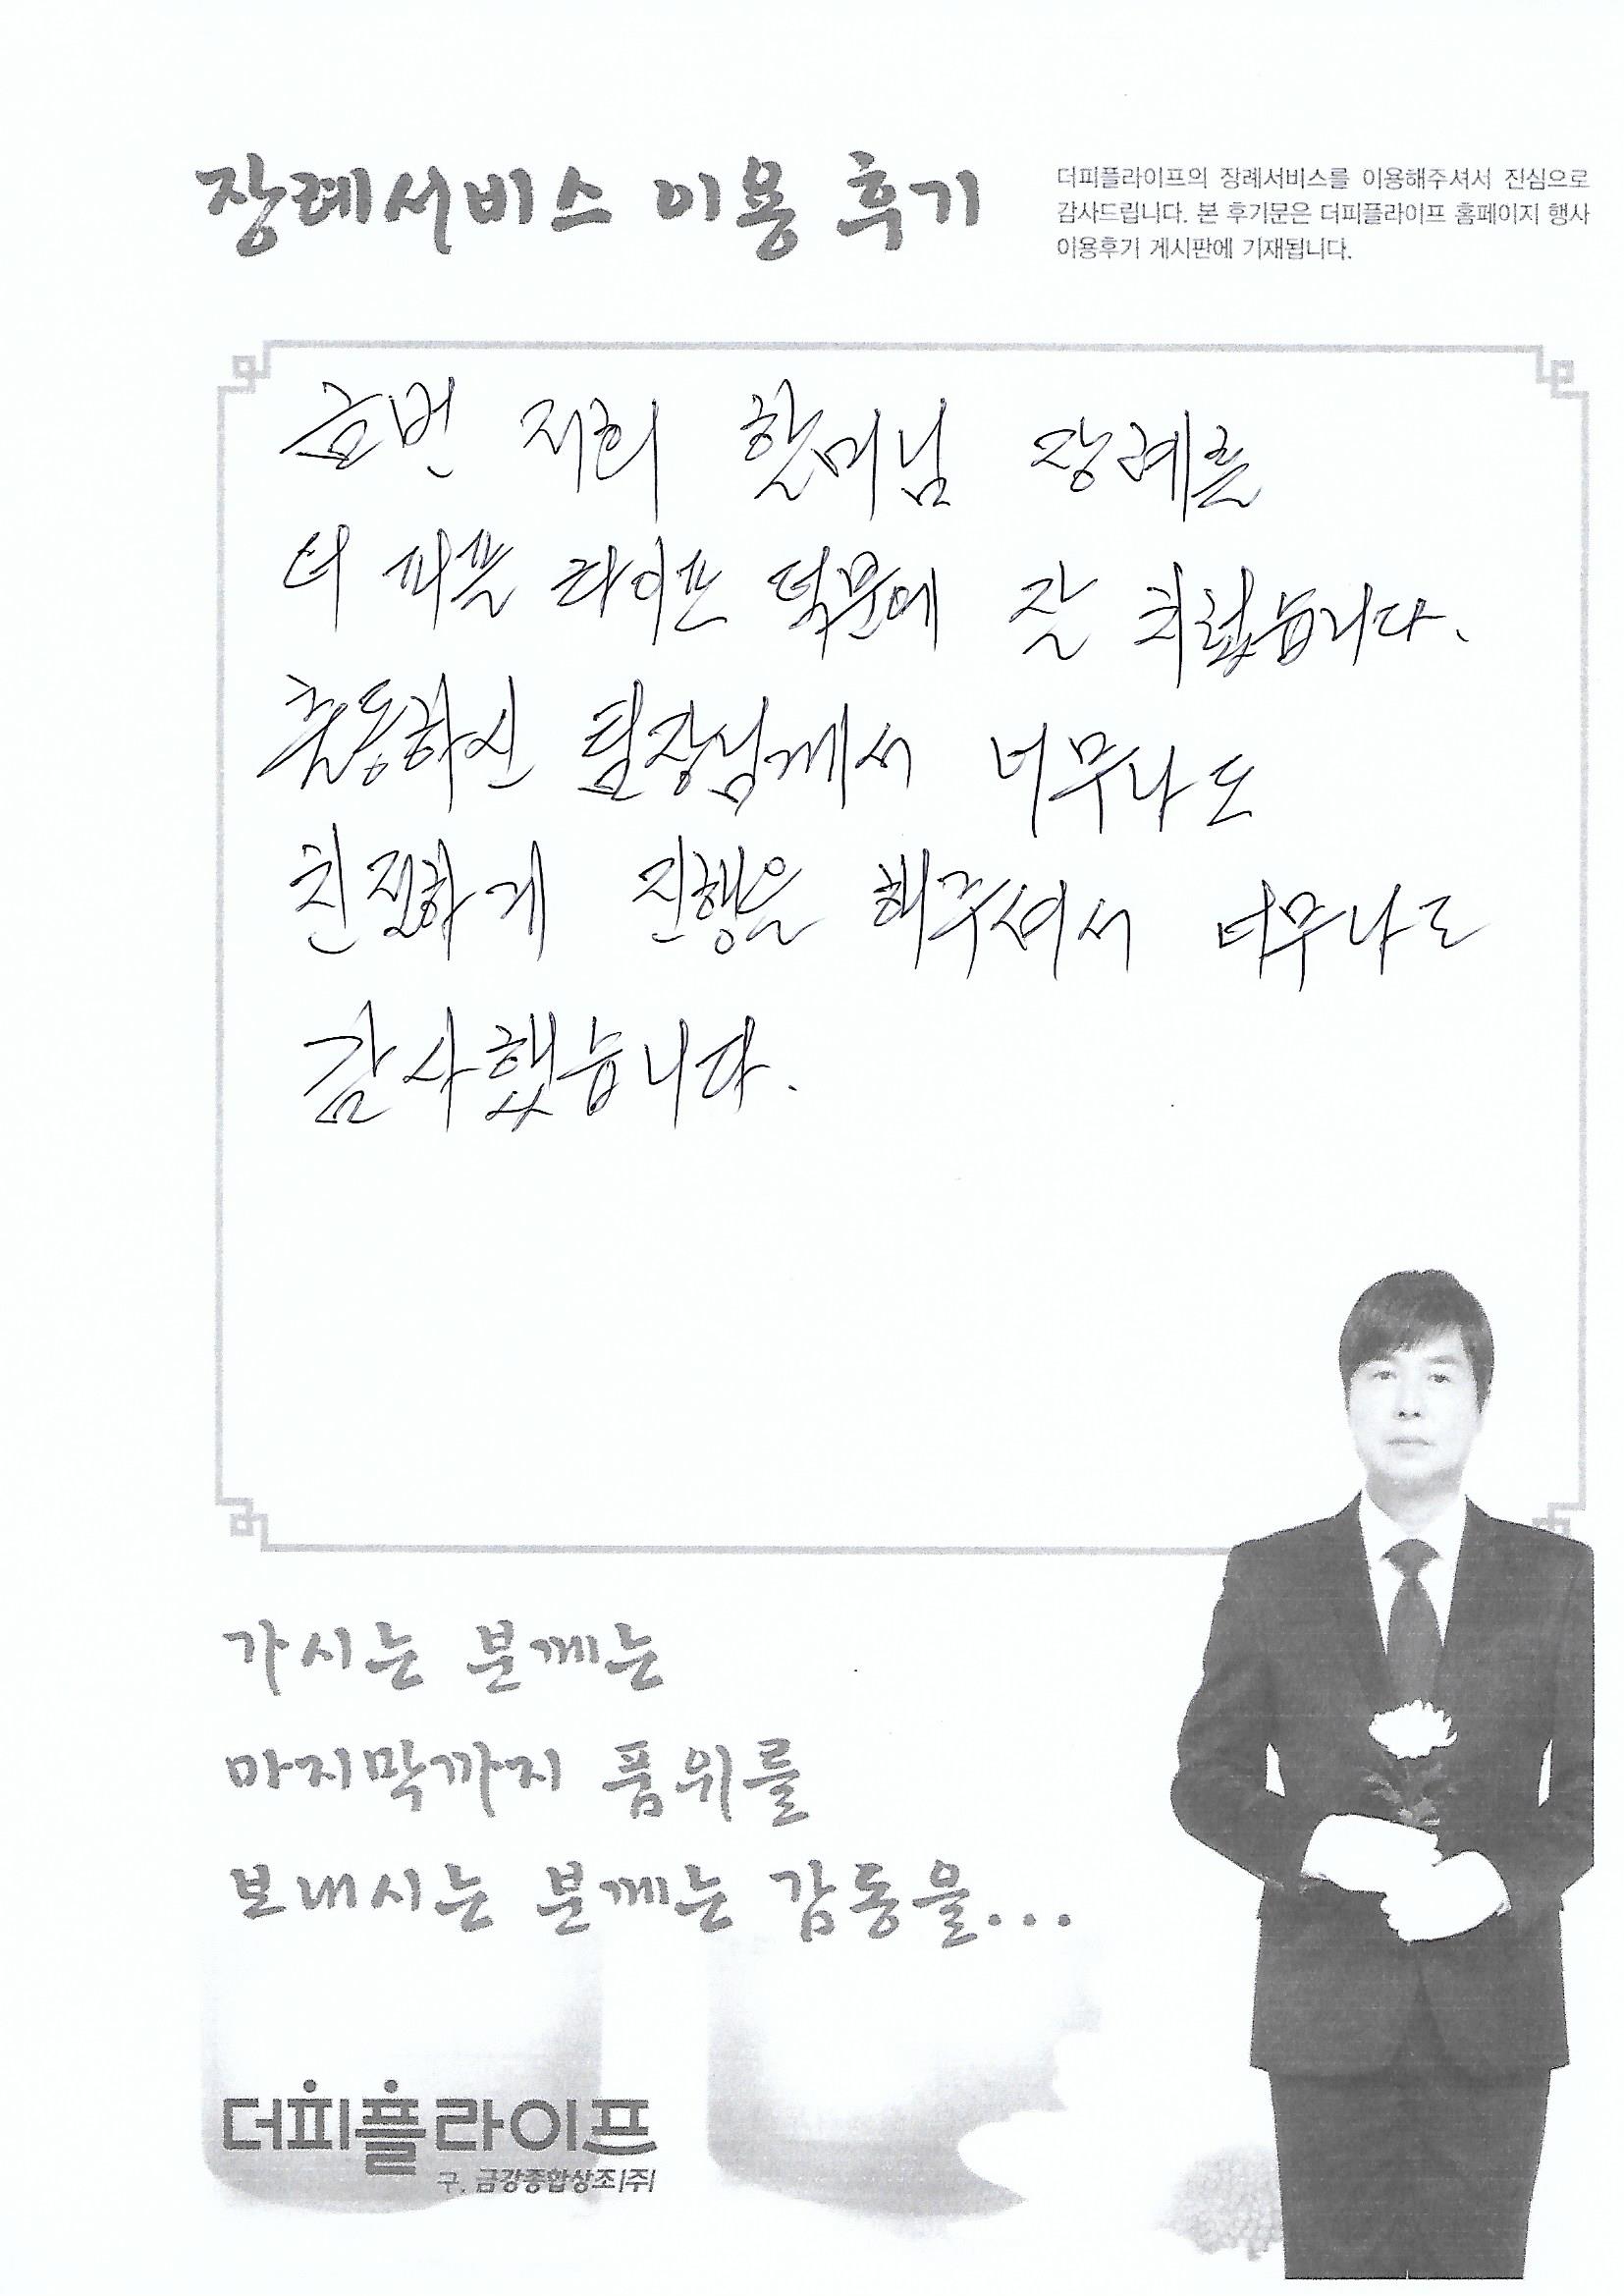 장례서비스 이용 후기
더피플라이프의 장례서비스를 이용해주셔서 진심으로
감사드립니다. 본 후기문은 더피플라이프 홈페이지 행사
이용후기 게시판에 기재됩니다.
금번 저희 할머님 장례를
더 피플 라이프 덕분에 잘 치렀습니다.
출동하신 팀장님께서 너무나도
친절하게 진행을 해주셔서 너무나도
감사했습니다.
가시는 분께는
마지막까지 품위를
보내시는 분께는 감동을...
더피플라이프
구. 금강종합상조(주)